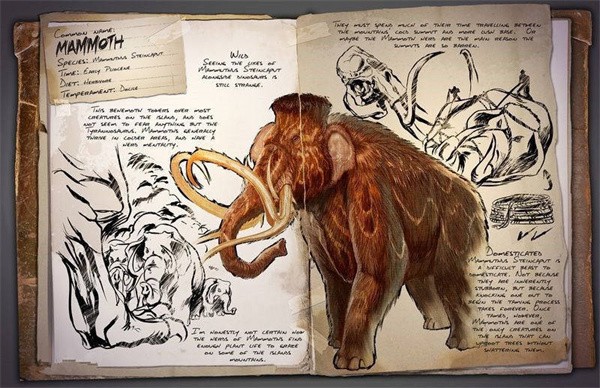 Common name:
Mammoth
Species: Mammuthus Steincaput
Time: Early Pliocene
Diet: Herbivore
Temperament: Docile
Wild
Seeing the likes of
Mammuthus Steincaput
alongside dinosaurs is
still strange.
This behemoth towers over most
creatures on the island, and does
not seem to fear anything but the
Tyrannosaurus. Mammoths generally
thrive in colder areas, and have a
herd mentality.
I'm honestly not certain how
the herds of Mammoths find
enough plant life to graze
on some of the islands
mountains.
They must spend much of their time travelling between
the mountains cold summit and more lush base. Or
maybe the Mammoth herds are the main reason the
summits are so barren.
Domesticated
Mammuthus Steincaput is
a difficult beast to
domesticate. Not because
they are inherently
stubborn, but because
knocking one out to
begin the taming process
takes forever. Once
tamed, however,
Mammoths are one of
the only creatures on
the island that can
uproot trees without
shattering them.